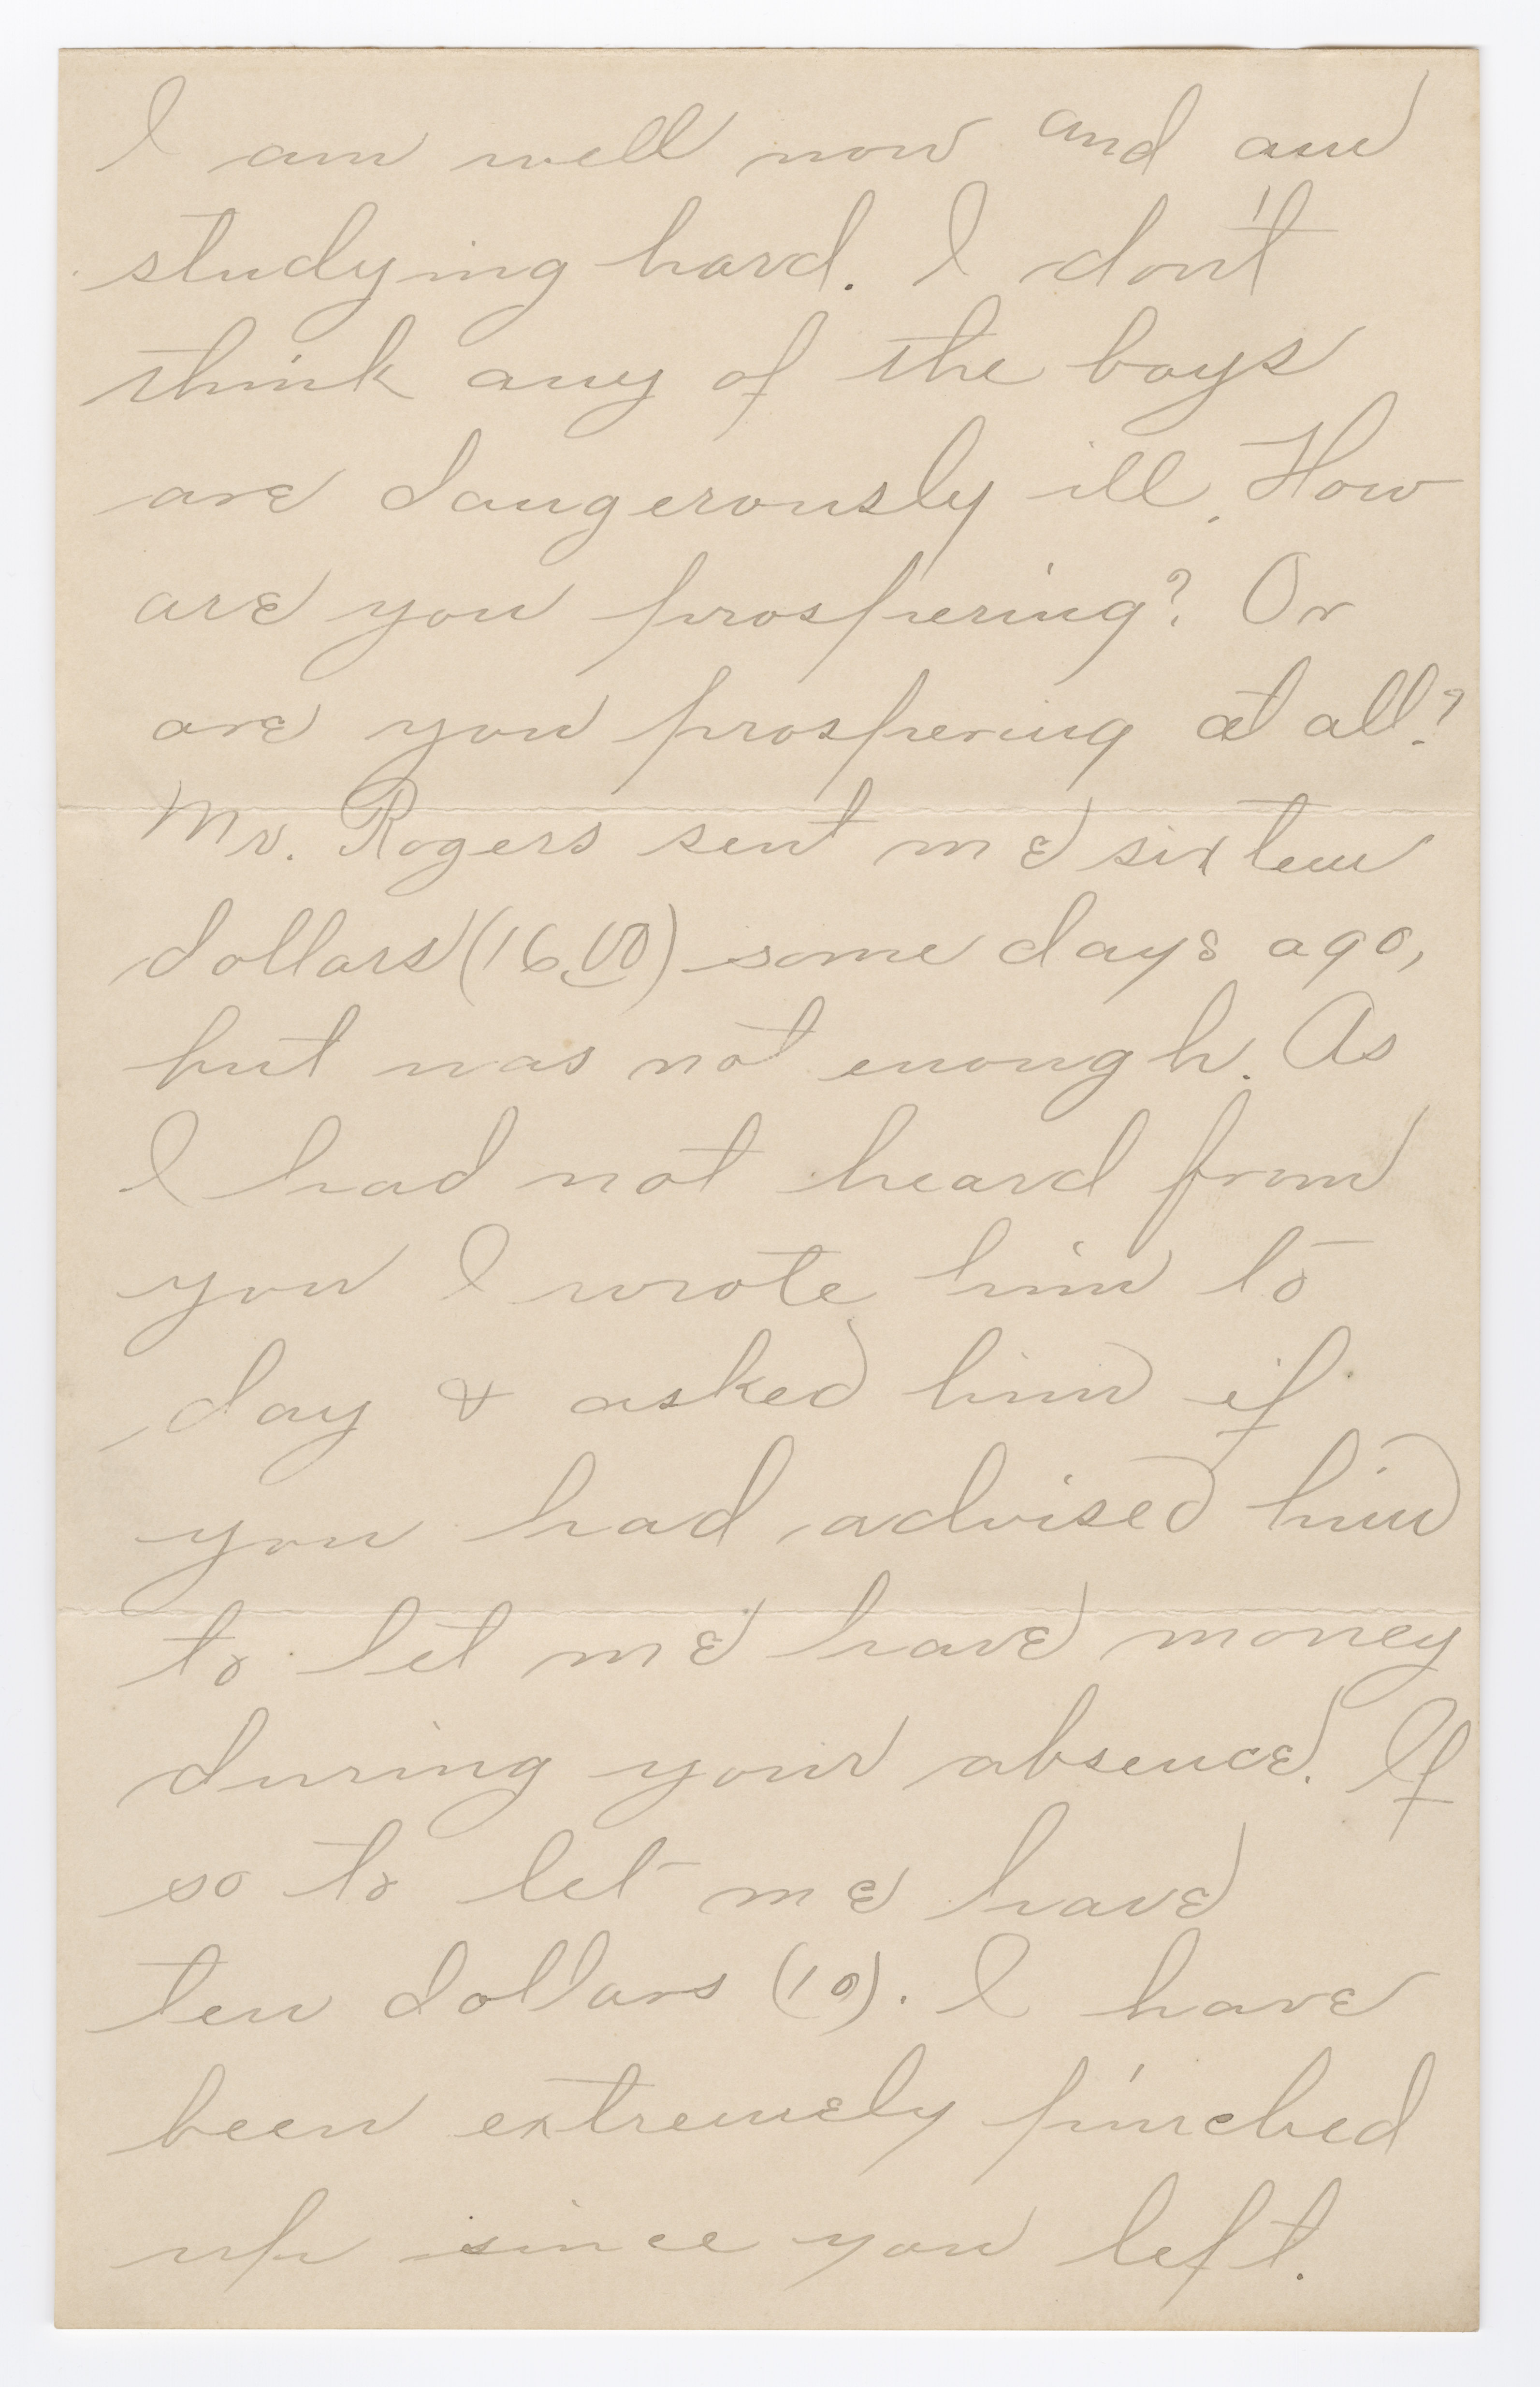 I am well now and am
studying hard. I don't
think any of the boys
are dangerously ill. How
are you prospering? Or
are you prospering at all?
Mr. Rogers sent me sixteen
dollars (16.00) some days ago,
but was not enough. As
I had not heard from
you I wrote him to
day & asked him if
you had advised him
to let me have money
during your absence. If
so to let me have
ten dollars (10). I have
been extremely pinched
up since you left.